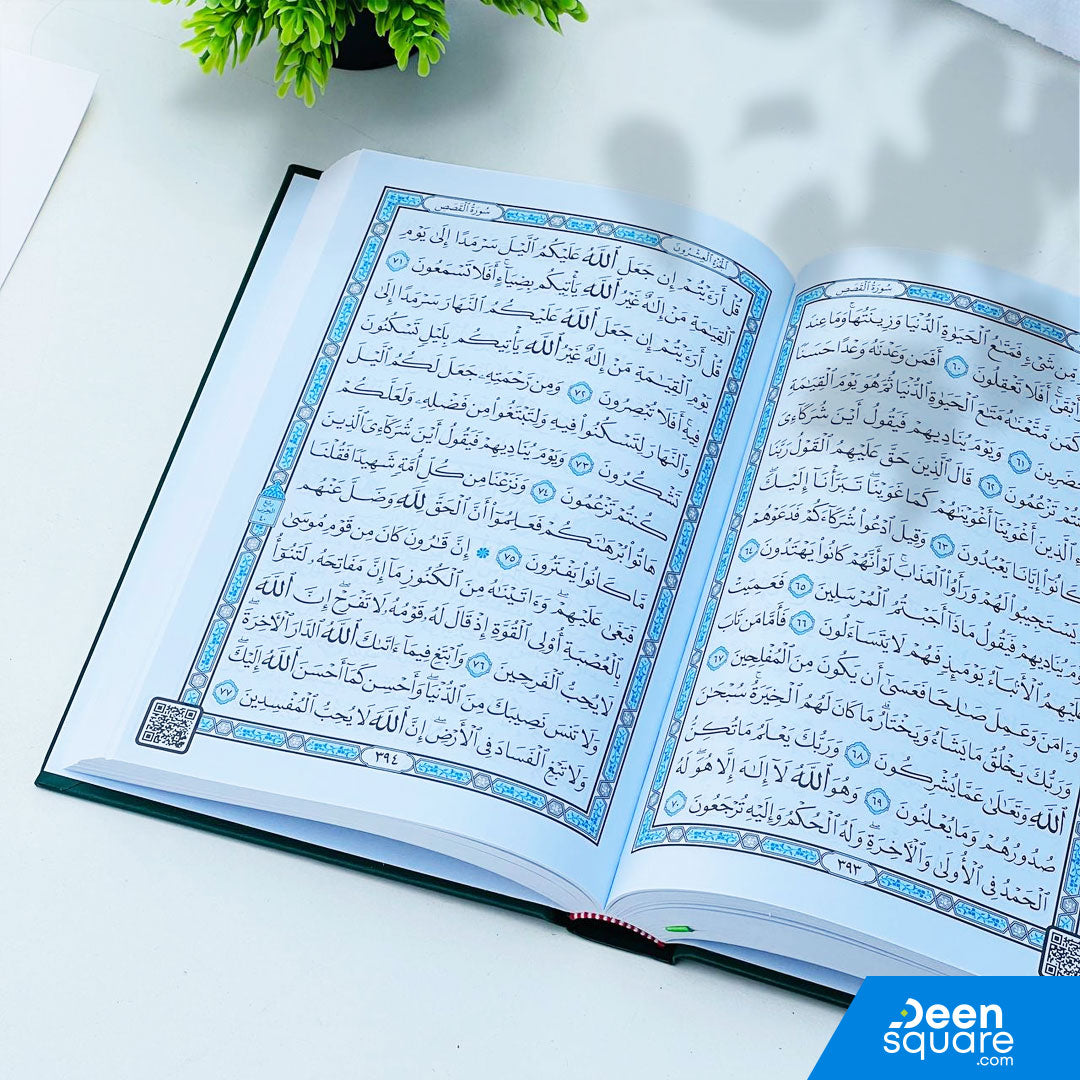 سُورَةُ القَصَصِ
مِّن شَىْءٍ فَمَتَـٰعُ ٱلْحَيَوٰةِ ٱلدُّنْيَا وَزِينَتُهَا ۚ وَمَا عِندَ
أَفَلَا تَعْقِلُونَ ٦٠ أَفَمَن وَعَدْنَـٰهُ وَعْدًا حَسَنًا
كَمَن مَّتَّعْنَـٰهُ مَتَـٰعَ ٱلْحَيَوٰةِ ٱلدُّنْيَا ثُمَّ هُوَ يَوْمَ ٱلْقِيَـٰمَةِ
٦١ وَيَوْمَ يُنَادِيهِمْ فَيَقُولُ أَيْنَ شُرَكَآءِىَ
تَزْعُمُونَ ٦٢ قَالَ ٱلَّذِينَ حَقَّ عَلَيْهِمُ ٱلْقَوْلُ رَبَّنَا
ٱلَّذِينَ أَغْوَيْنَآ أَغْوَيْنَـٰهُمْ كَمَا غَوَيْنَا ۖ تَبَرَّأْنَآ إِلَيْكَ
كَانُوٓا۟ إِيَّانَا يَعْبُدُونَ ٦٣ وَقِيلَ ٱدْعُوا۟ شُرَكَآءَكُمْ فَدَعَوْهُمْ
يَسْتَجِيبُوا۟ لَهُمْ وَرَأَوُا۟ ٱلْعَذَابَ ۚ لَوْ أَنَّهُمْ كَانُوا۟ يَهْتَدُونَ ٦٤
يُنَادِيهِمْ فَيَقُولُ مَاذَآ أَجَبْتُمُ ٱلْمُرْسَلِينَ ٦٥ فَعَمِيَتْ
عَلَيْهِمُ ٱلْأَنۢبَآءُ يَوْمَئِذٍ فَهُمْ لَا يَتَسَآءَلُونَ ٦٦ فَأَمَّا مَن تَابَ
وَءَامَنَ وَعَمِلَ صَـٰلِحًا فَعَسَىٰٓ أَن يَكُونَ مِنَ ٱلْمُفْلِحِينَ ٦٧
وَرَبُّكَ يَخْلُقُ مَا يَشَآءُ وَيَخْتَارُ ۗ مَا كَانَ لَهُمُ ٱلْخِيَرَةُ ۚ سُبْحَـٰنَ
ٱللَّهِ وَتَعَـٰلَىٰ عَمَّا يُشْرِكُونَ ٦٨ وَرَبُّكَ يَعْلَمُ مَا تُكِنُّ
صُدُورُهُمْ وَمَا يُعْلِنُونَ ٦٩ وَهُوَ ٱللَّهُ لَآ إِلَـٰهَ إِلَّا هُوَ ۖ لَهُ
ٱلْحَمْدُ فِى ٱلْأُولَىٰ وَٱلْـَٔاخِرَةِ ۖ وَلَهُ ٱلْحُكْمُ وَإِلَيْهِ تُرْجَعُونَ ٧٠
٣٩٣
الجُزْءُ العِشْرُونَ
سُورَةُ القَصَصِ
قُلْ أَرَءَيْتُمْ إِن جَعَلَ ٱللَّهُ عَلَيْكُمُ ٱلَّيْلَ سَرْمَدًا إِلَىٰ يَوْمِ
ٱلْقِيَـٰمَةِ مَنْ إِلَـٰهٌ غَيْرُ ٱللَّهِ يَأْتِيكُم بِضِيَآءٍ ۖ أَفَلَا تَسْمَعُونَ ٧١
قُلْ أَرَءَيْتُمْ إِن جَعَلَ ٱللَّهُ عَلَيْكُمُ ٱلنَّهَارَ سَرْمَدًا إِلَىٰ
يَوْمِ ٱلْقِيَـٰمَةِ مَنْ إِلَـٰهٌ غَيْرُ ٱللَّهِ يَأْتِيكُم بِلَيْلٍ تَسْكُنُونَ
فِيهِ ۖ أَفَلَا تُبْصِرُونَ ٧٢ وَمِن رَّحْمَتِهِۦ جَعَلَ لَكُمُ ٱلَّيْلَ
وَٱلنَّهَارَ لِتَسْكُنُوا۟ فِيهِ وَلِتَبْتَغُوا۟ مِن فَضْلِهِۦ وَلَعَلَّكُمْ
تَشْكُرُونَ ٧٣ وَيَوْمَ يُنَادِيهِمْ فَيَقُولُ أَيْنَ شُرَكَآءِىَ ٱلَّذِينَ
كُنتُمْ تَزْعُمُونَ ٧٤ وَنَزَعْنَا مِن كُلِّ أُمَّةٍ شَهِيدًا فَقُلْنَا
هَاتُوا۟ بُرْهَـٰنَكُمْ فَعَلِمُوٓا۟ أَنَّ ٱلْحَقَّ لِلَّهِ وَضَلَّ عَنْهُم
مَّا كَانُوا۟ يَفْتَرُونَ ٧٥ إِنَّ قَـٰرُونَ كَانَ مِن قَوْمِ مُوسَىٰ
فَبَغَىٰ عَلَيْهِمْ ۖ وَءَاتَيْنَـٰهُ مِنَ ٱلْكُنُوزِ مَآ إِنَّ مَفَاتِحَهُۥ لَتَنُوٓأُ
بِٱلْعُصْبَةِ أُو۟لِى ٱلْقُوَّةِ إِذْ قَالَ لَهُۥ قَوْمُهُۥ لَا تَفْرَحْ ۖ إِنَّ ٱللَّهَ
لَا يُحِبُّ ٱلْفَرِحِينَ ٧٦ وَٱبْتَغِ فِيمَآ ءَاتَىٰكَ ٱللَّهُ ٱلدَّارَ ٱلْـَٔاخِرَةَ ۖ
وَلَا تَنسَ نَصِيبَكَ مِنَ ٱلدُّنْيَا ۖ وَأَحْسِن كَمَآ أَحْسَنَ ٱللَّهُ إِلَيْكَ ۖ
وَلَا تَبْغِ ٱلْفَسَادَ فِى ٱلْأَرْضِ ۖ إِنَّ ٱللَّهَ لَا يُحِبُّ ٱلْمُفْسِدِينَ ٧٧
٣٩٤
Deen
square
.com